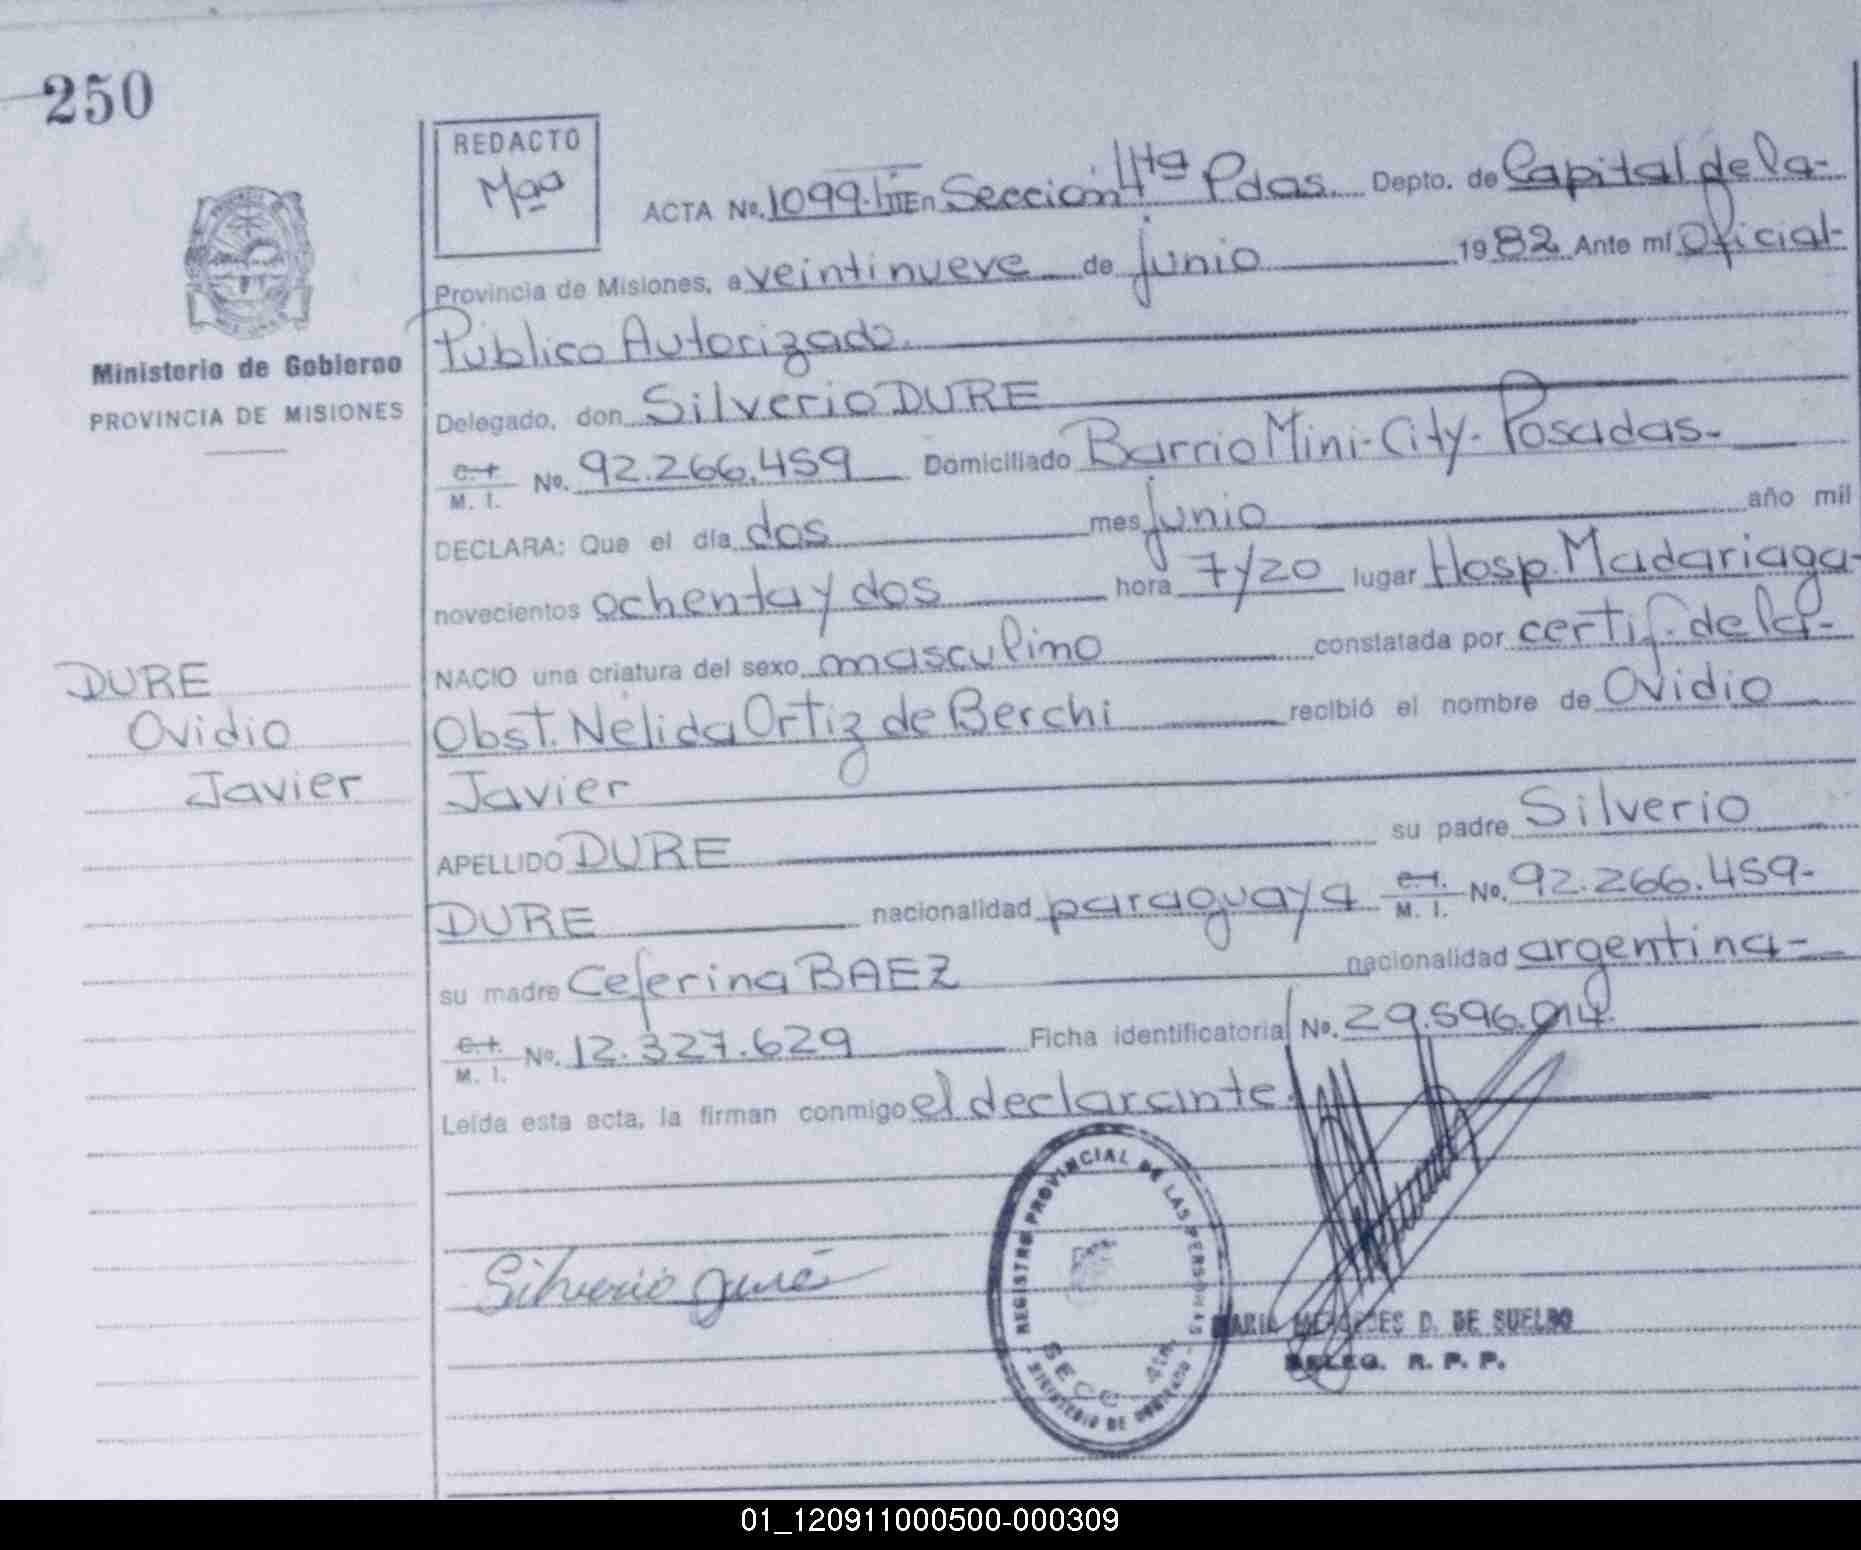 250
REDACTO
Maa
ACTA No. 1099.TIII En Sección 4ta Pdas. Depto. de Capital de la-
Provincia de Misiones, a veintinueve de junio 1982 Ante mí Oficial-
Público Autorizado.
Ministerio de Gobierno
PROVINCIA DE MISIONES
Delegado, don Silverio DURE
C.I. M. I. No. 92.266.459 Domiciliado Barrio Mini-City-Posadas-
DECLARA: Que el día dos mes junio año mil
novecientos ochenta y dos hora 7y20 lugar Hosp. Madariaga-
NACIO una criatura del sexo masculino constatada por certif. de la-
DURE
Ovidio
Javier
Obst. Nélida Ortiz de Berchi recibió el nombre de Ovidio
Javier
APELLIDO DURE su padre Silverio
DURE nacionalidad paraguaya C.I. M. I. No. 92.266.459-
su madre Ceferina BAEZ nacionalidad argentina-
C.I. M. I. No. 12.327.629 Ficha identificatoria No. 29.596.014.
Leída esta acta, la firman conmigo el declarante.
Silverio Duré
REGISTRO PROVINCIAL DE LAS PERSONAS
SECC. 4ta.
MINISTERIO DE GOBIERNO
MARIA MERCEDES D. DE SUELDO
DELEG. R. P. P.
01_120911000500-000309